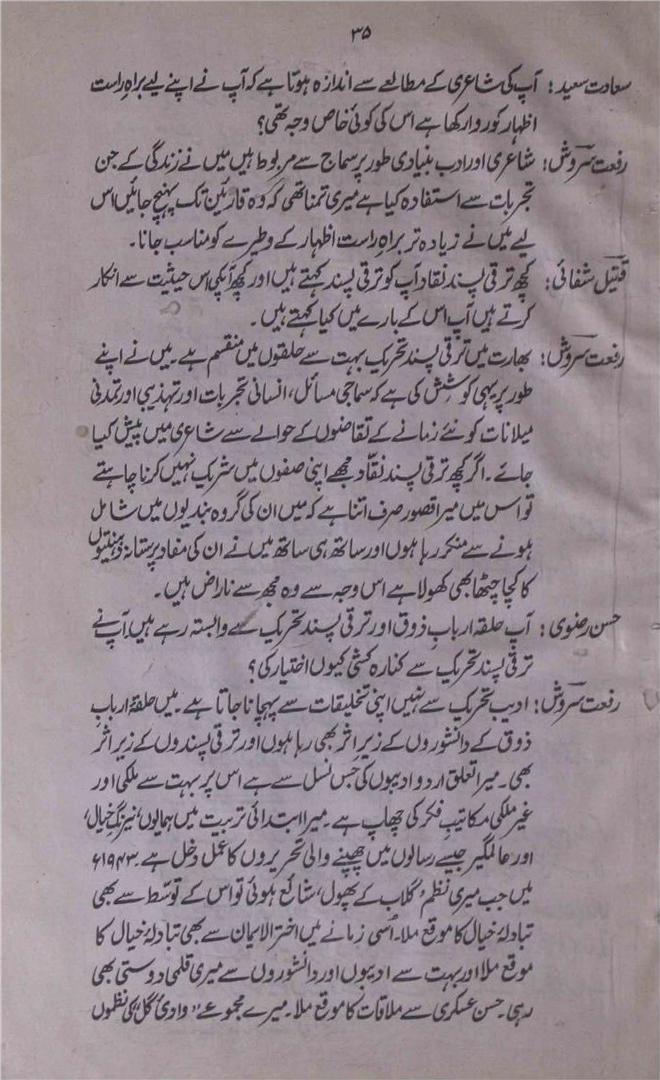 ۳۵
سعادت سعید: آپ کی شاعری کے مطالعے سے اندازہ ہوتا ہے کہ آپ نے اپنے لیے براہِ راست
اظہار کو روا رکھا ہے اس کی کوئی خاص وجہ تھی؟
رفعت سروش: شاعری اور ادب بنیادی طور پر سماج سے مربوط ہیں میں نے زندگی کے جن
تجربات سے استفادہ کیا ہے میری تمنا تھی کہ وہ قارئین تک پہنچ جائیں اس
لیے میں نے زیادہ تر براہِ راست اظہار کے وطیرے کو مناسب جانا۔
قتیل شفائی: کچھ ترقی پسند نقاد آپ کو ترقی پسند کہتے ہیں اور کچھ آپکی اس حیثیت سے انکار
کرتے ہیں آپ اس کے بارے میں کیا کہتے ہیں۔
رفعت سروش: بھارت میں ترقی پسند تحریک بہت سے حلقوں میں منقسم ہے۔ میں نے اپنے
طور پر یہی کوشش کی ہے کہ سماجی مسائل، انسانی تجربات اور تہذیبی اور تمدنی
میلانات کو نئے زمانے کے تقاضوں کے حوالے سے شاعری میں پیش کیا
جائے۔ اگر کچھ ترقی پسند نقّاد مجھے اپنی صفوں میں شریک نہیں کرنا چاہتے
تو اس میں میرا قصور صرف اتنا ہے کہ میں ان کی گروہ بندیوں میں شامل
ہونے سے منکر رہا ہوں اور ساتھ ہی ساتھ میں نے ان کی مفاد پرستانہ ذہنیتوں
کا کچا چٹھا بھی کھولا ہے اس وجہ سے وہ مجھ سے ناراض ہیں۔
حسن رضوی: آپ حلقہ اربابِ ذوق اور ترقی پسند تحریک سے وابستہ رہے ہیں آپ نے
ترقی پسند تحریک سے کنارہ کشی کیوں اختیار کی؟
رفعت سروش: ادیب تحریک سے نہیں اپنی تخلیقات سے پہچانا جاتا ہے۔ میں حلقۂ اربابِ
ذوق کے دانشوروں کے زیرِ اثر بھی رہا ہوں اور ترقی پسندوں کے زیر اثر
بھی۔ میرا تعلق اردو ادیبوں کی جس نسل سے ہے اس پر بہت سے ملکی اور
غیر ملکی مکاتیبِ فکر کی چھاپ ہے۔ میرا ابتدائی تربیت میں ہمایوں، نیرنگِ خیال،
اور عالمگیر جیسے رسالوں میں چھپنے والی تحریروں کا عمل دخل ہے۔ ۱۹۴۳ء
میں جب میری نظم ’گلاب کے پھول‘ شائع ہوئی تو اس کے توسّط سے بھی
تبادلۂ خیال کا موقع ملا۔ اُسی زمانے میں اختر الایمان سے بھی تبادلۂ خیال کا
موقع ملا اور بہت سے ادیبوں اور دانشوروں سے میری قلمی دوستی بھی
رہی۔ حسن عسکری سے ملاقات کا موقع ملا۔ میرے مجموعے ”وادئ گل“ کی نظموں